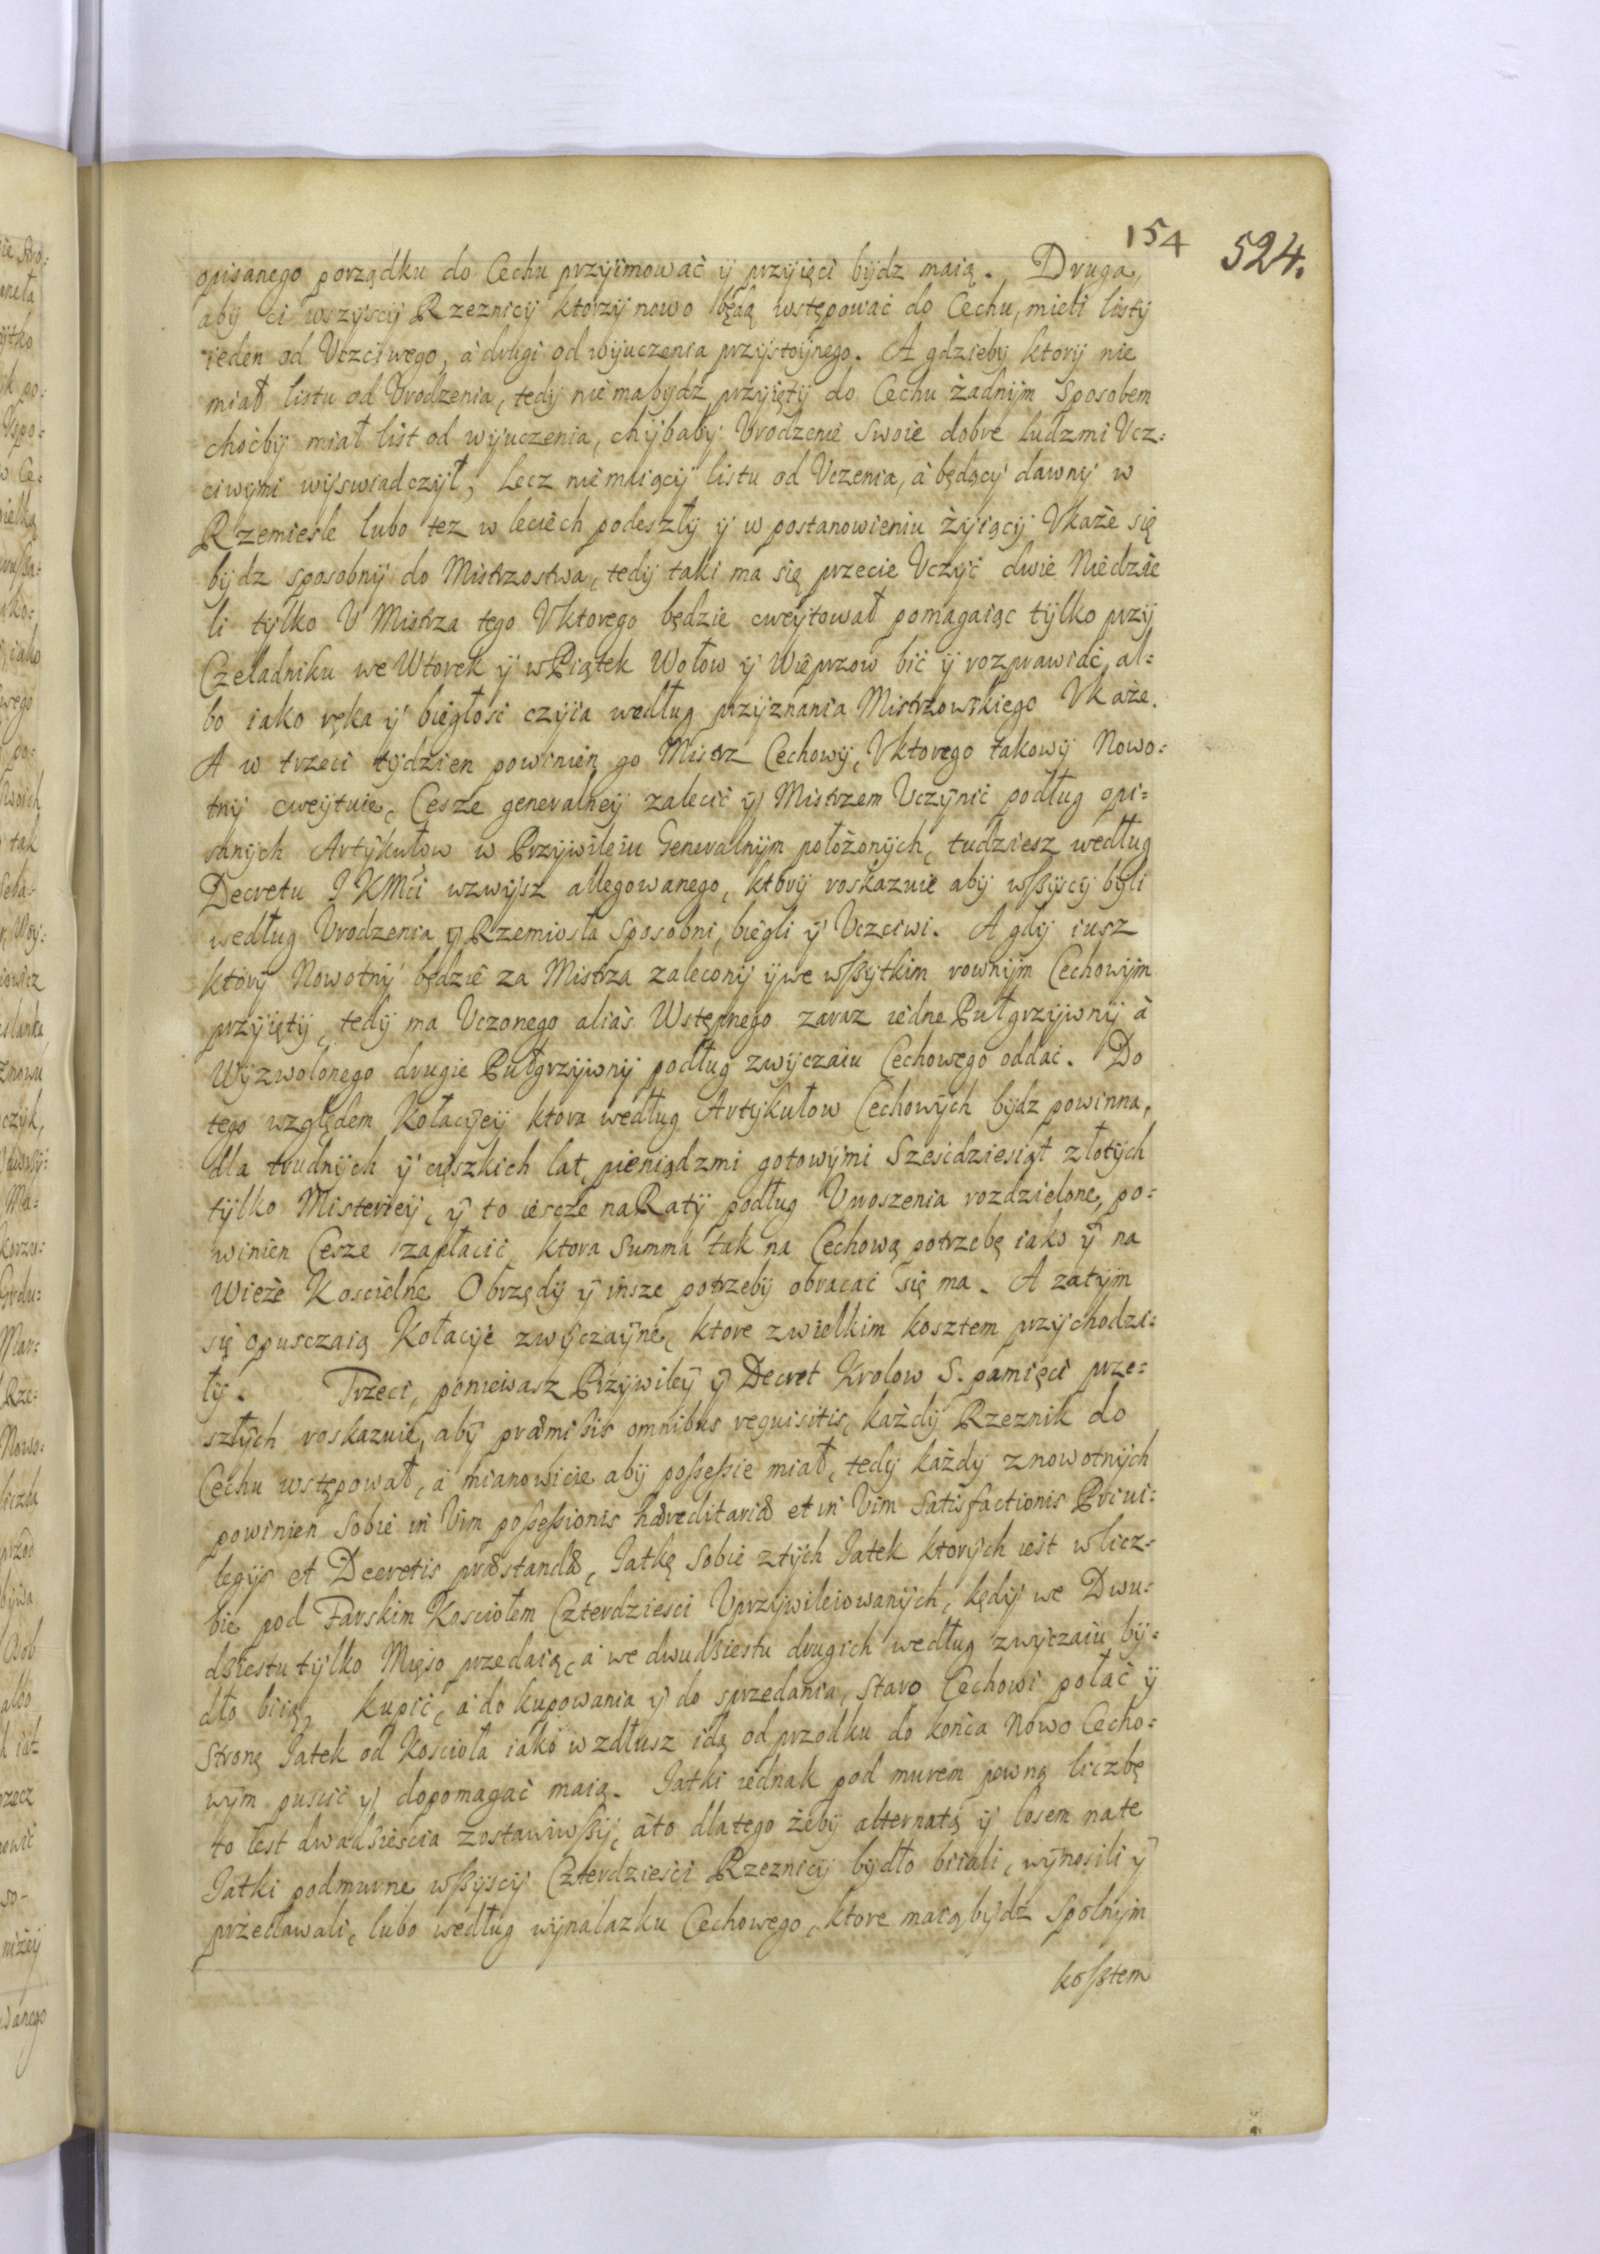 154 524.
opisanego porządku do Cechu przyimować ÿ przyięci bÿdz maią. Druga,
abÿ ci wszÿscÿ Rzeznicÿ ktorzÿ nowo będą wstępować do Cechu, mieli listÿ
ieden od Vczciwego, à drugi od wÿuczenia przÿstoÿnego. A gdzieby ktorÿ nie
miał listu od Vrodzenia, tedÿ nie ma bydz przyiętÿ do Cechu żadnÿm sposobem
choćbÿ miał list od wÿuczenia, chÿbabÿ Vrodzenie swoie dobre ludzmi Vcz=
ciwÿmi wÿswiadczÿł, Lecz niemaiącÿ listu od Vczenia, à będącÿ dawnÿ w
Rzemieśle lubo tez w leciech podeszłÿ ÿ w postanowieniu żÿiącÿ Vkaże się
bÿdz sposobnÿ do Mistrzostwa, tedÿ taki ma się przecie Vczÿć dwie Niedzie
li tÿlko V Mistrza tego Vktorego będzie cweÿtował pomagaiąc tÿlko przÿ
Czeladniku we Wtorek ÿ w Piątek Wołow ÿ Wieprzow bić ÿ rozprawiać, al=
bo iako ręka ÿ biegłosć czÿia według przÿznania Mistrzowskiego Vkaże.
A w trzeci tÿdzien powinien go Mistrz Cechowÿ, Vktorego takowÿ Nowo=
tnÿ cweÿtuie, Cesze generalneÿ zalecić ÿ Mistrzem Vczÿnić podług opi=
sanÿch Artÿkułow w Przÿwileiu Generalnÿm położonÿch, tudziesz według
Decretu J KMći wzwÿsz allegowanego, ktorÿ roskazuie abÿ wßÿscÿ bÿli
według Vrodzenia ÿ Rzemiosła sposobni, biegli ÿ Vczciwi. A gdÿ iusz
ktorÿ Nowotnÿ będzie za Mistrza zaleconÿ ÿ we wßÿtkim rownÿm Cechowÿm
przÿiętÿ, tedÿ ma Vczonego alias Wstępnego zaraz iedne Pułgrzÿwnÿ à
Wÿzwolonego drugie Pułgrzÿwnÿ podług zwÿczaiu Cechowego oddać. Do
tego względem Kołacÿeÿ ktora według Artÿkułow Cechowÿch bÿdz powinna,
dla trudnÿch ÿ cięszkich lat, pieniądzmi gotowÿmi Sześcdziesiąt złotÿch
tÿlko Misterieÿ, ÿ to iescze na Ratÿ podług Vproszenia rozdzielone, po=
winien Cesze zapłacić, ktora Summa tak na Cechową potrzebę iako ÿ na
Wieże Koscielne Obrzędÿ ÿ insze potrzebÿ obracać się ma. A zatÿm
się opusczaią Kołacÿie zwÿczaÿne, ktore z wielkim kosztem przÿchodzi=
łÿ. Trzeci, poniewasz Przÿwileÿ ÿ Decret Krolow S. pamięci prze=
szłÿch roskazuie, abÿ præmissis omnibus requisitis, każdÿ Rzeznik do
Cechu wstępował, à mianowicie abÿ poßeßie miał, tedÿ każdÿ z nowotnÿch
powinien sobie in Vim poßeßionis hæreditariæ et in Vim satisfactionis Priui=
legÿs et Decretis præstandæ, Jatkę sobie z tÿch Jatek ktorÿch iest w licz=
bie pod Farskim Kosciołem Czterdziesci Vprzÿwileiowanÿch, kędÿ we Dwu=
dziestu tÿlko Mięso przedaią, à we dwudziestu drugich według zwÿczaiu bÿ=
dło biią, kupić, à do kupowania ÿ do sprzedania, staro Cechowi połać ÿ
Stronę Jatek od Kosciola iako wzdłusz idą od przodku do konca Nowo Cecho=
wÿm puscić ÿ dopomagać maią. Jatki iednak pod murem pewną liczbę
to iest dwadziescia zostawiwßÿ, à to dlatego żebÿ alternatą ÿ losem na te
Jatki podmurne wßÿscÿ Czterdziesci Rzeznicÿ bÿdło biiali, wÿnosili ÿ
przedawali, lubo według wÿnalazku Cechowego, ktore maią bÿdz spolnÿm
koßtem